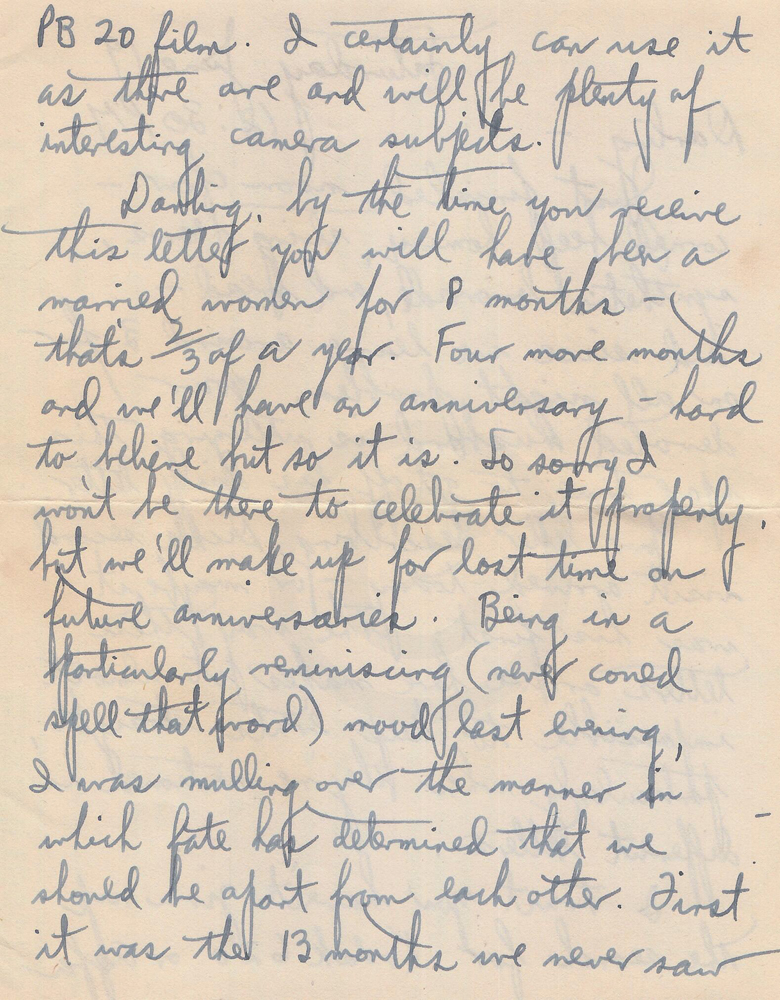 PB 20 film. I certainly can use it
as there are and will be plenty of
interesting camera subjects.
Darling, by the time you receive
this letter you will have been a
married women for 8 months -
that's 2/3 of a year. Four more months
and we'll have an anniversary - hard
to believe but so it is. So sorry I
won't be there to celebrate it properly,
but we'll make up for lost time on
future anniversaries. Being in a
particularly reminiscing (never coued
spell that word) mood last evening,
I was mulling over the manner in
which fate has determined that we
should be apart from each other. First
it was the 13 months we never saw